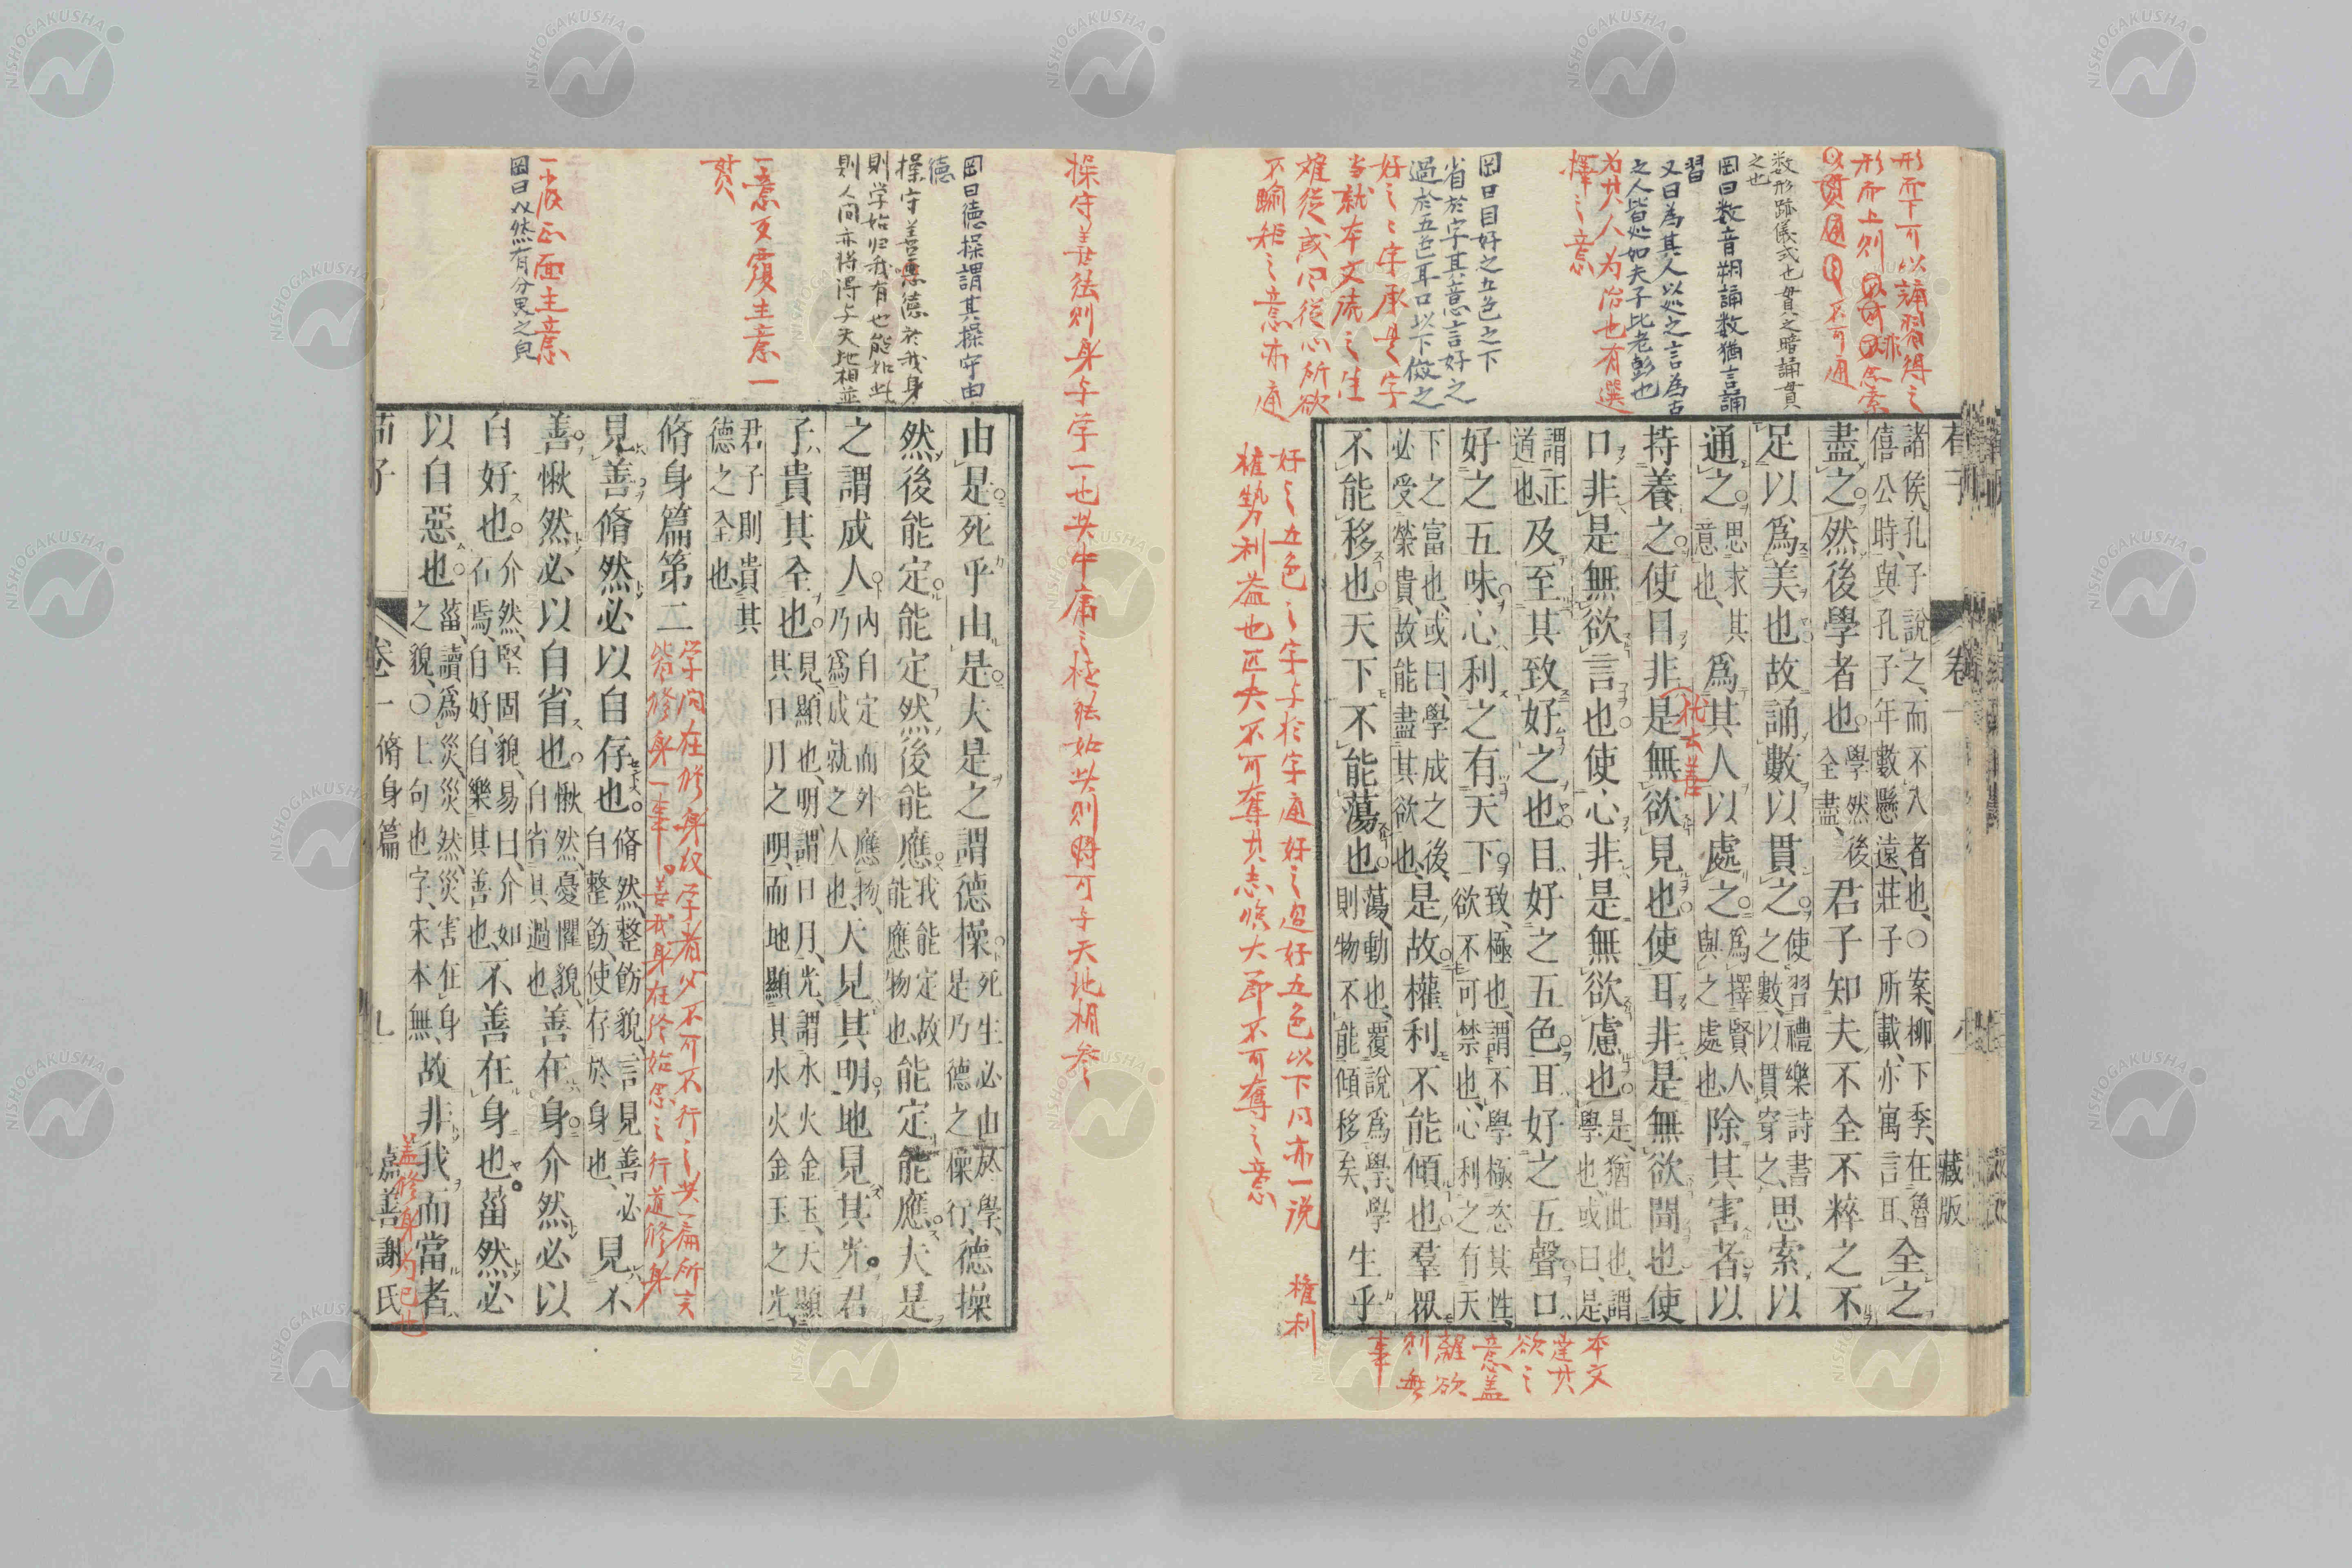 形而下可以誦習得之
形而上則非
數形跡儀式也貫之暗誦貫
之也
岡曰数音朔誦数猶言誦
習
又曰為其人以処之言為古
之人皆処如夫子比老彭也
为其人为治也有選
擇之意
岡曰目好之五色之下
省於字其意言好之
過於五色耳口以下倣之
好之之字承是字
当就本文读之
难從或曰從心所欲
不踰矩之意亦通
荀子
卷一
八
藏版
諸侯、孔子說之、而不入者也、○案、柳下季、在魯
僖公時、與孔子年數懸遠、莊子所載、亦寓言耳、全之
盡之。然後學者也。學然後
全盡、君子知夫不全不粹之不
足以爲美也故誦數以貫之。使習禮樂詩書
之數、以貫穿之、思索以
通之。思求其
意也、爲其人以處之。爲擇賢人
與之處也除其害者。以
持養之。使目非是無欲見也。使耳非是無欲聞也使
口非是無欲言也。使心非是無欲慮也。是、猶此也、謂
學也、或曰、是、
謂正
道也、及至其致好之也目好之五色。耳好之五聲口
好之五味。心利之有天下。致、極也、謂不學極恣其性、
欲不可禁也、心利之有天
下之富也、或曰、學成之後、
必受榮貴、故能盡其欲也、是故權利不能傾也。羣眾
不能移也。天下不能蕩也。蕩、動也、覆說爲學、學
則物不能傾移矣、生乎
本文
従其
欲之
意盖
縦欲
則無
事
好之五色之字与於字通好之過好五色以下同亦一说
權利
權勢利益也匹夫不可奪其志臨大節不可奪之意
操守善法則身与学一也共中庸之極法如此則時可与天地相参
岡曰徳操謂其操守由
徳
操守善悪徳於我身
則学始归我有也能如此
則人间亦将得与天地相並
一意反覆主意一
貫
一段正面主意
岡曰以然有分界之皃
由是死乎由是。夫是之謂德操。死生必由於學、
是乃德之操行、德操
然。後能定。能定然後能應。我能定故
能應物也、能定能應。夫是
之謂成人。內自定而外應物、
乃爲成就之人也、天見其明。地見其光。君
子貴其全也。見、顯也、明、謂日月、光、謂水火金玉、天顯
其日月之明、而地顯其水火金玉之光、
君子則貴其
德之全也
脩身篇第二
学问在修身故学者必不可不行之共篇所言
皆修身一事。善我身在終始念之行道修身
見善脩然必以自存也。脩然、整飭貌、言見善必
自整飭、使存於身也、見不
善。愀然必以自省也。愀然、憂懼貌、
自省其過也、善在身。介然必以
自好也。介然、堅固貌、易曰、介如
石焉、自好、自樂其善也、不善在身也菑然必
以自惡也。菑、讀爲災、災然、災害在身
之貌、○上句也字、宋本無、故非我而當者、
盖修身为己也
荀子
卷一
脩身篇
九
嘉善謝氏